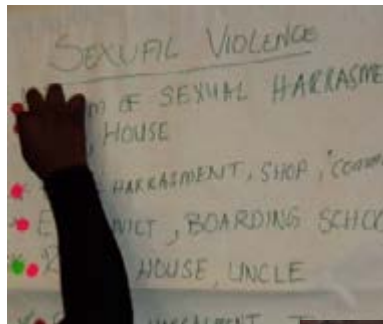 SEXUAL VIOLENCE
OF SEXUAL HARRASME
HOUSE
HARRASMENT, SHOP,
, BOARDING SCHO
HOUSE, UNCLE
HARRASMENT